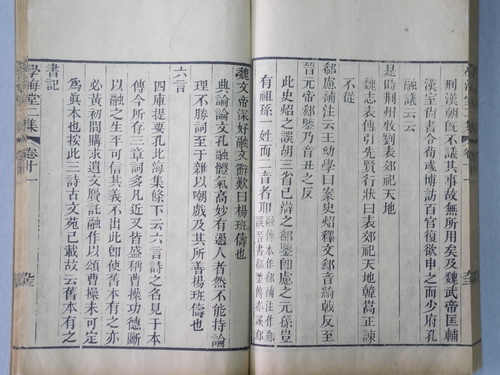 刑漢朝既不議其事故無所用矣及魏武帝匡輔
漢室尚書令荀彧博訪百官復欲申之而少府孔
融議云云
是時荆州牧劉表郊祀天地
魏志表傳引先賢行狀曰表郊祀天地韓嵩正諫
不從
郗慮補注云王幼學曰案史炤釋文郗音綺戟反至
晉元帝郗鑒音丑之反
此史炤之誤胡三省已辯之郗鑒即慮之元孫豈
有祖孫一姓而二音者耶
魏文帝深好融文辭歎曰楊班儔也
典論論文孔融體氣高妙有過人者然不能持論
理不勝詞至于雜以嘲戲及其所善楊班儔也
六言
四庫提要孔北海集條下云六言詩之名見于本
傳今所存三章詞多凡近又皆盛稱曹操功德斷
以融之生平可信其義不出此卽使舊本有之亦
必黃初間購求遺文贋託融作以頌曹操未可定
爲眞本也按此三詩古文苑已載故云舊本有之
書記
學海堂二集 卷十一